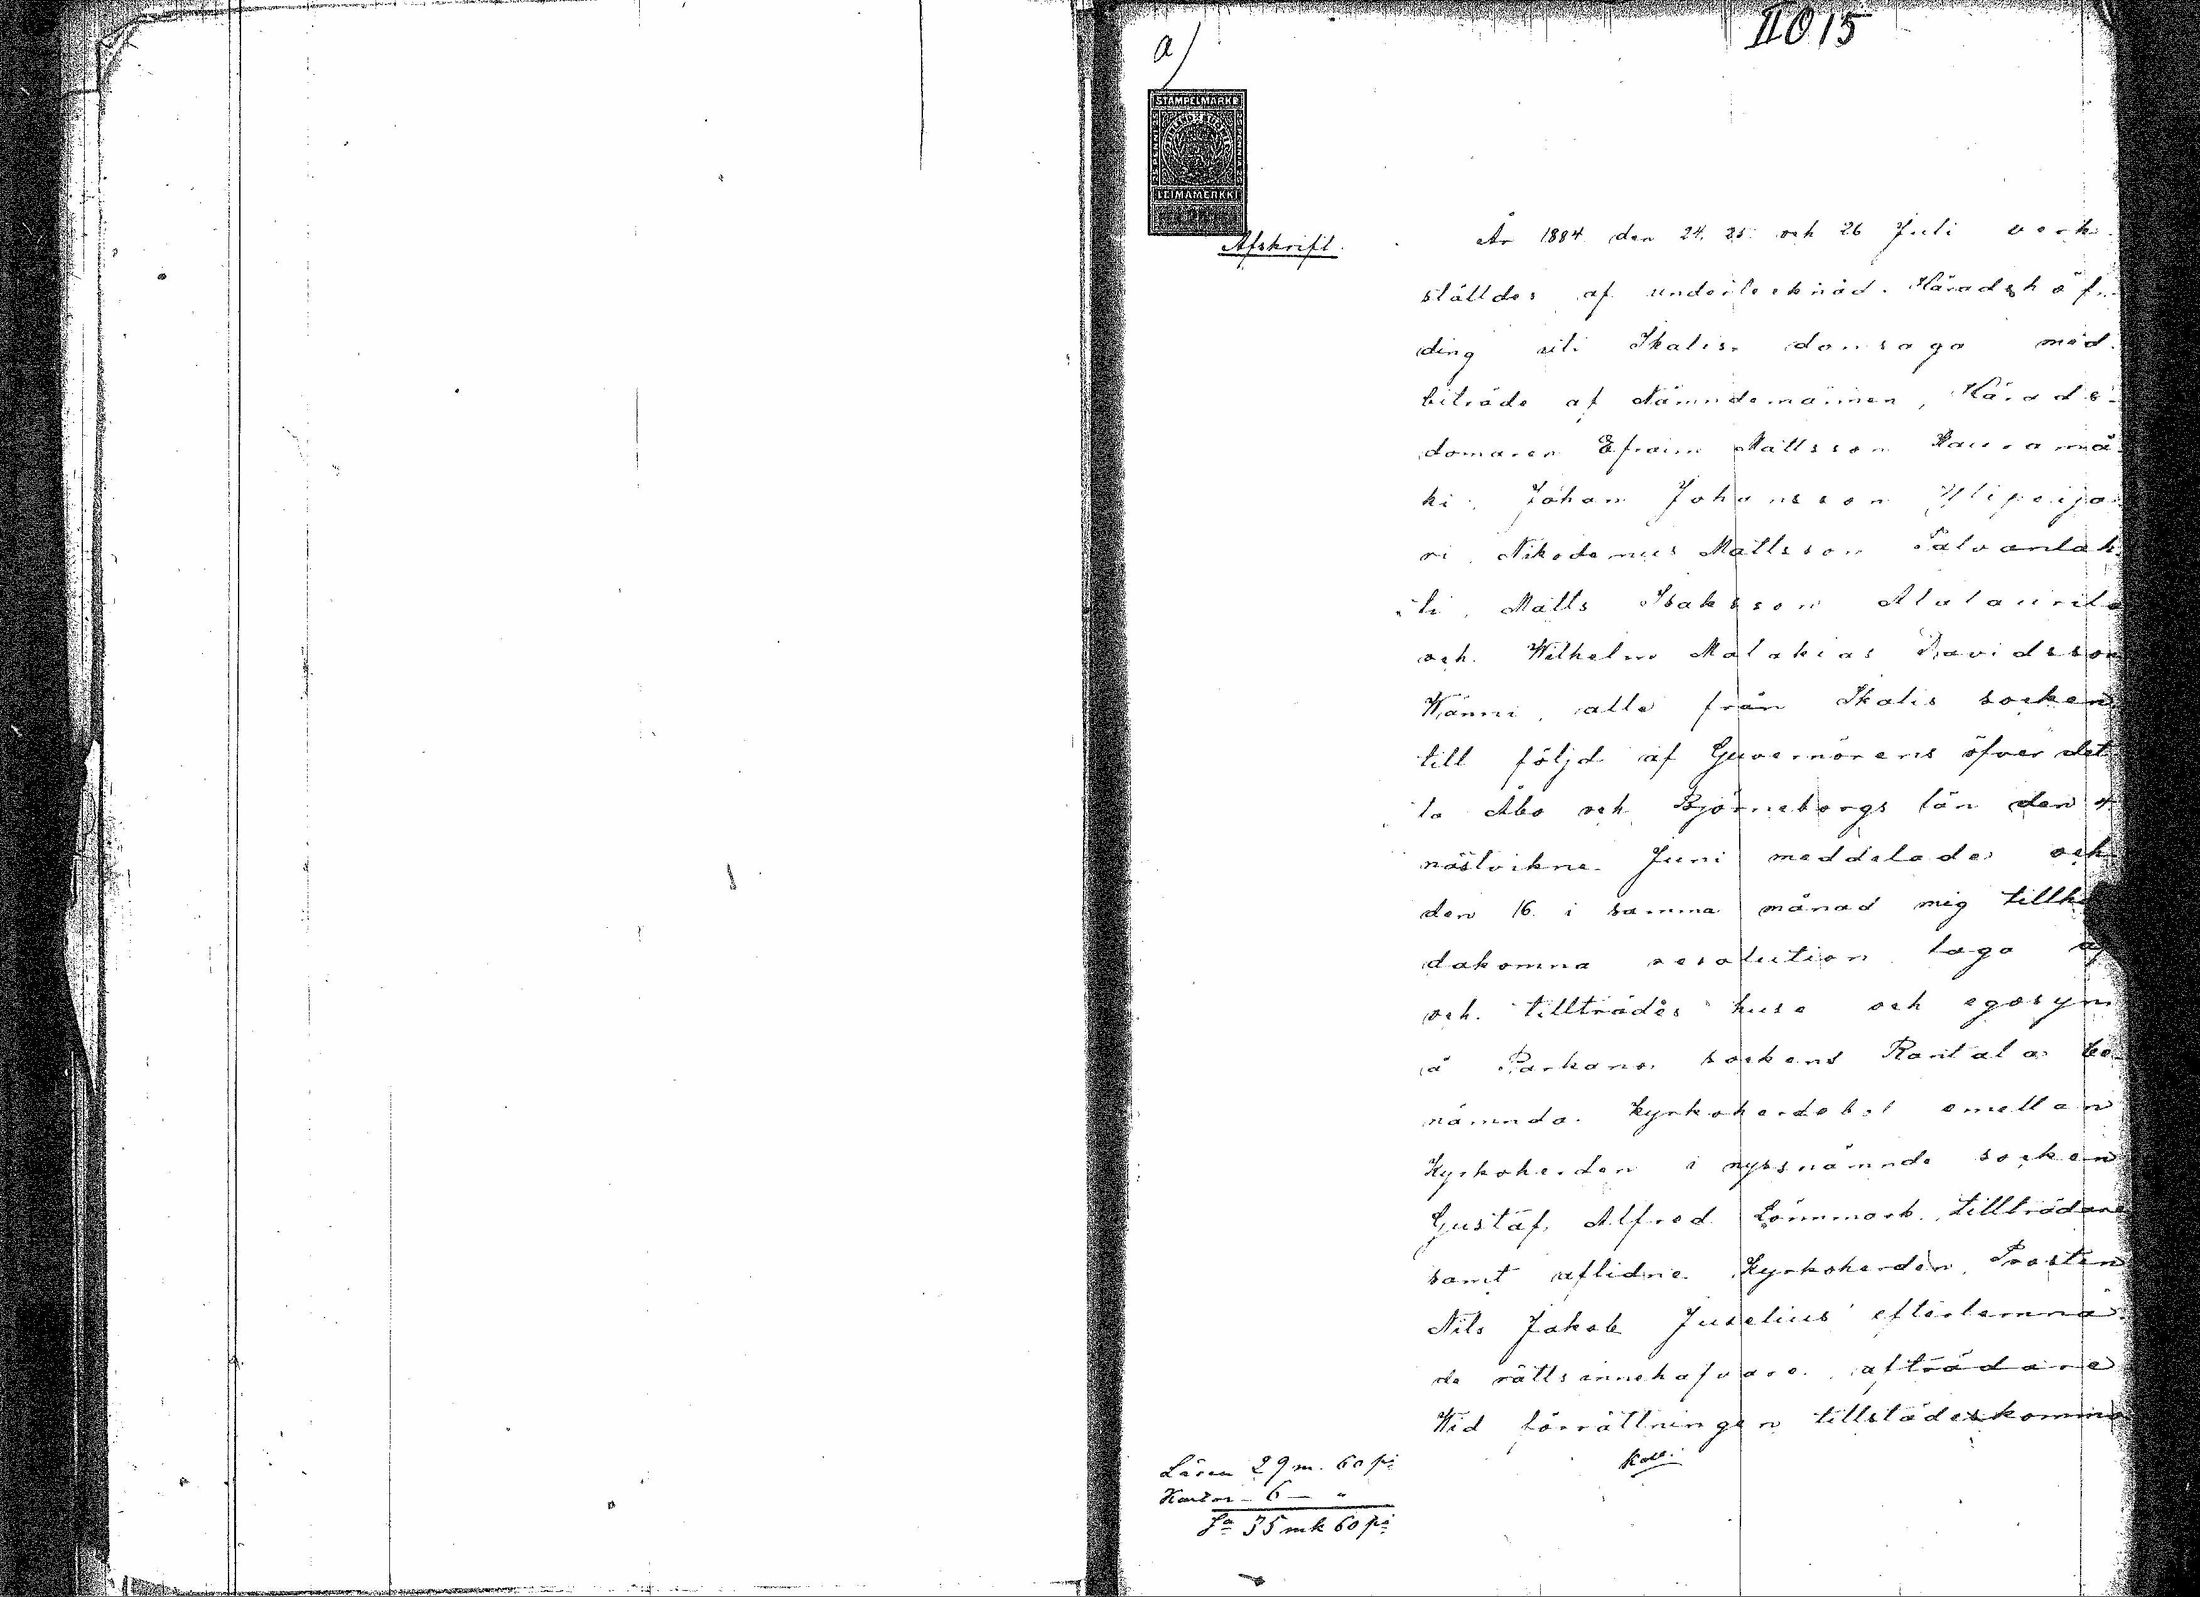 II O 15
a)
STÄMPELMÄRKE
25 PENNI 25
25 PENNIÄ 25
LEIMAMERKKI
Afskrift.
År 1884 den 24, 25 och 26 Juli verk-
ställdes af undertecknad Häradshöf-
ding uti Ikalis domsaga med
biträde af Nämndemännen, Härads-
domaren Efraim Mattsson Kauramä-
ki, Johan Johansson Ylipeija-
ri, Nikodemus Mattsson Salvanlak-
ti, Matts Isaksson Alalaurila
och Wilhelm Malakias Davidsson
Wänni, alla från Ikalis socken
till följd af Guvernörens öfver det
ta Åbo och Björneborgs län den 4
nästvikne Juni meddelade och
den 16 i samma månad mig tillhan
dakomna resolution laga af
och tillträdes huse och egosyn
å Parkano sockens Rantala be-
nämnda Kyrkoherdebol emellan
Kyrkoherden i nyssnämnde socken
Gustaf Alfred Lönnmark, tillträdare
samt aflidne Kyrkoherden, Prosten
Nils Jakob Juselius' efterlemna-
de rättsinnehafvare, afträdare
Wid förrättningen tillstädeskommo
Koll.
Lösen 29 m. 60 pi
6 — "
Sa 35 mk 60 pi